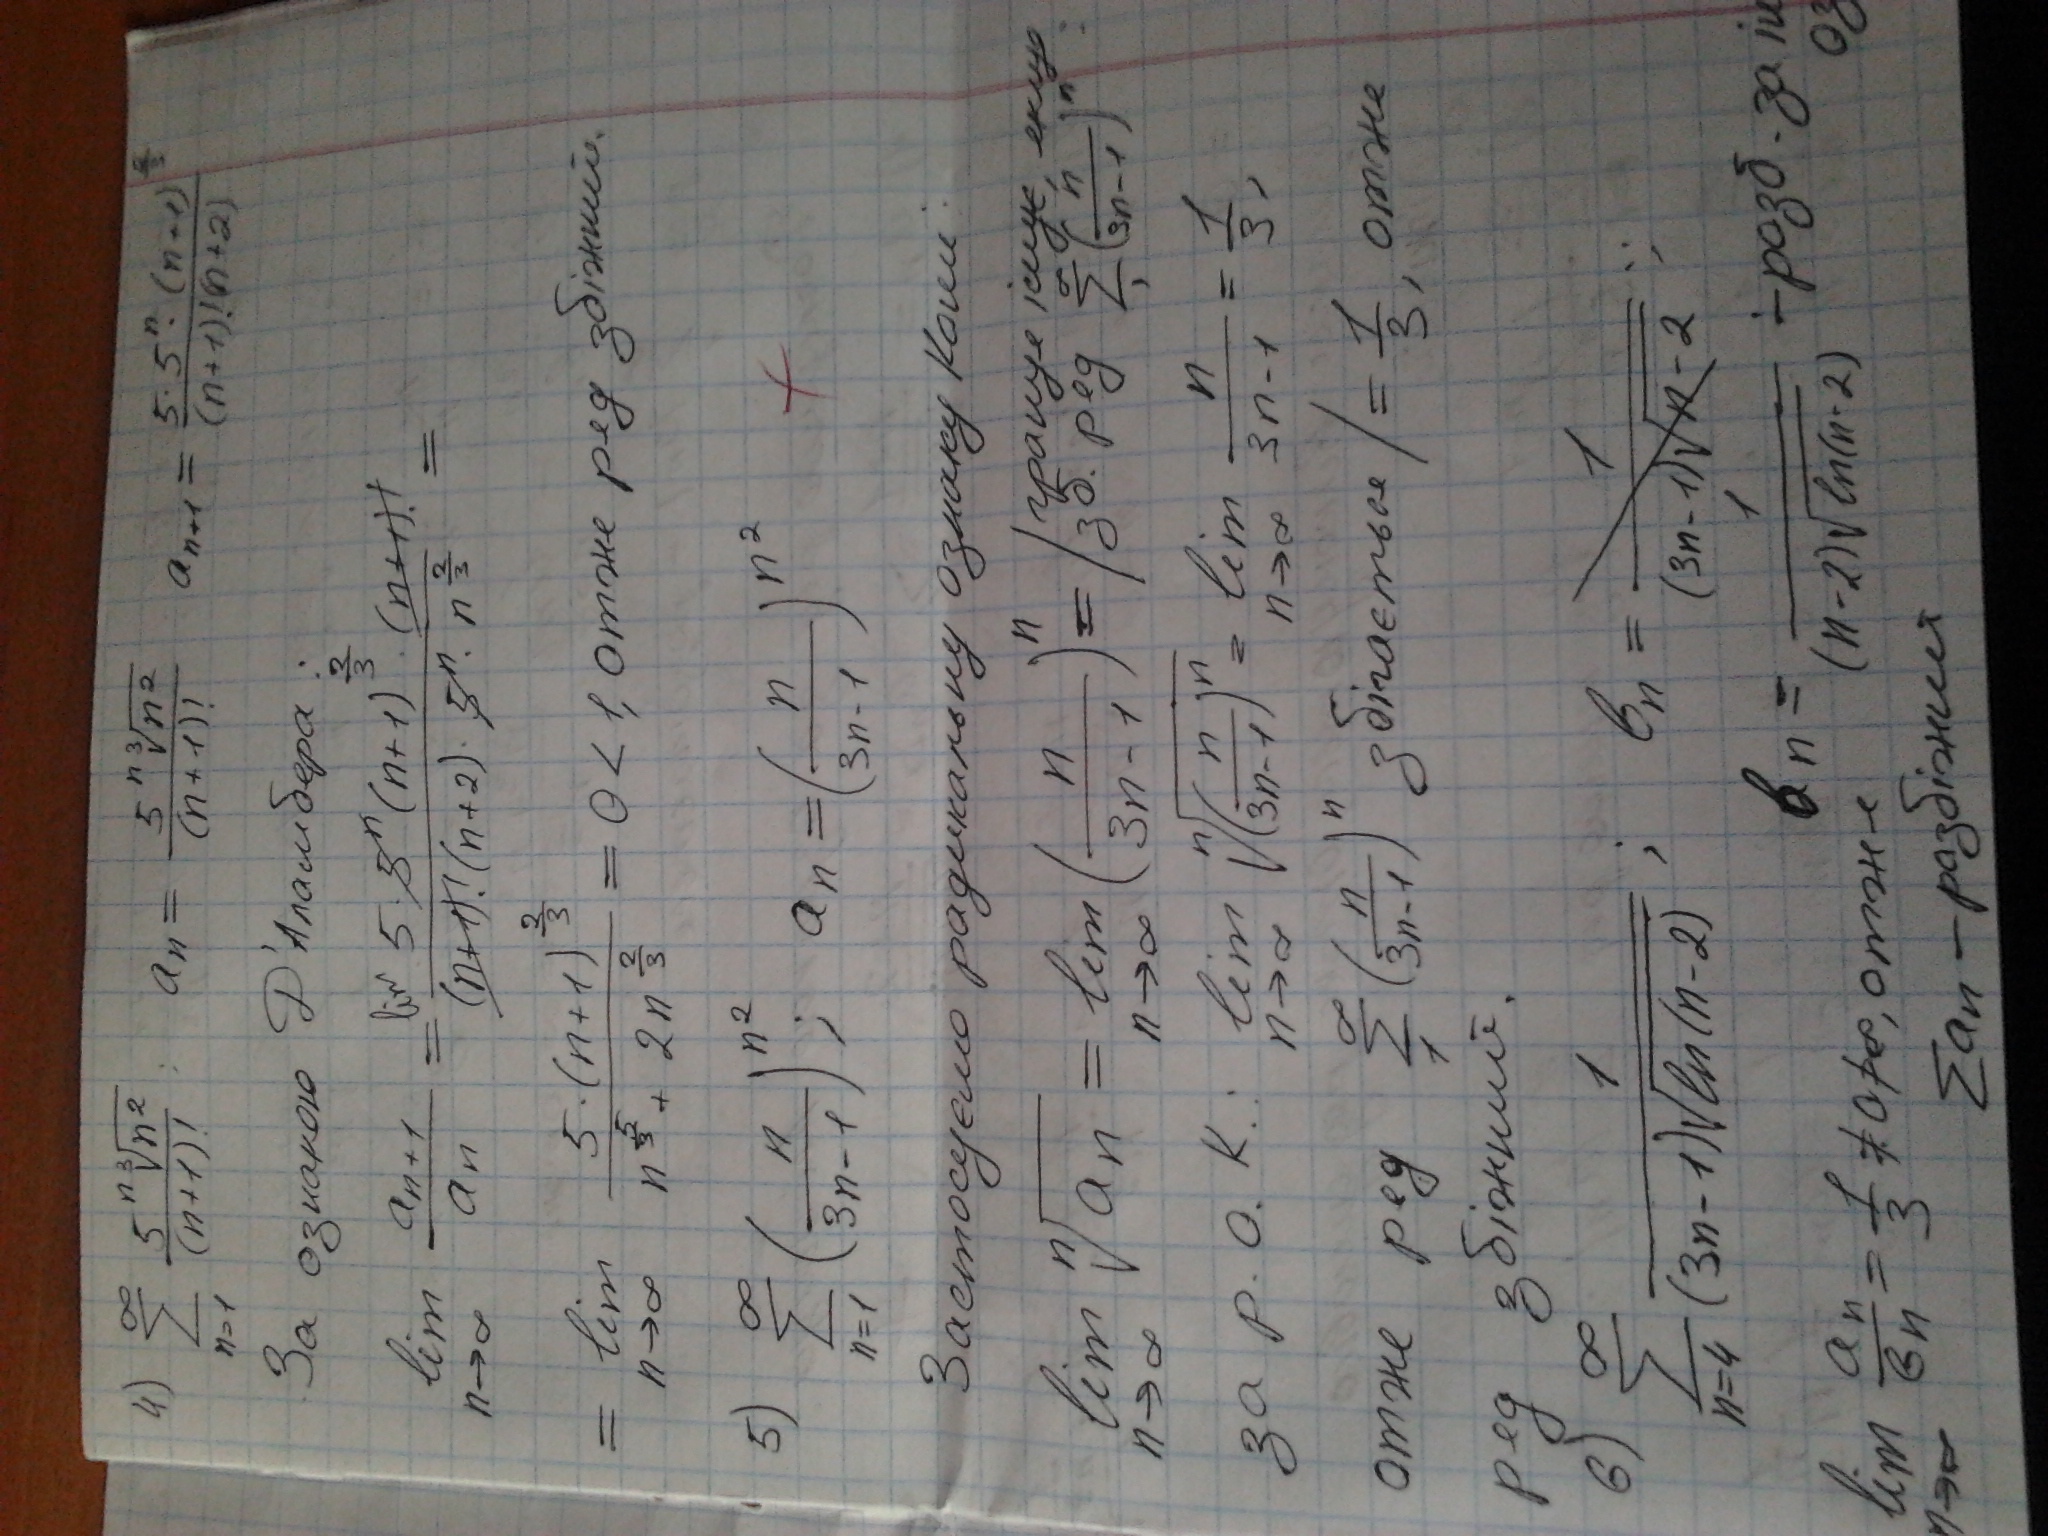 4) \sum_{n=1}^{\infty} \frac{5^n \sqrt[3]{n^2}}{(n+1)!} ; a_n = \frac{5^n \sqrt[3]{n^2}}{(n+1)!} a_{n+1} = \frac{5 \cdot 5^n \cdot (n+1)^{\frac{2}{3}}}{(n+1)!(n+2)}
За ознакою Д'Аламбера:
\lim_{n→∞} \frac{a_{n+1}}{a_n} = \lim \frac{5 \cdot 5^n (n+1)^{\frac{2}{3}} \cdot (n+1)!}{(n+1)!(n+2) \cdot 5^n \cdot n^{\frac{2}{3}}} =
= \lim_{n→∞} \frac{5 \cdot (n+1)^{\frac{2}{3}}}{n^{\frac{5}{3}} + 2n^{\frac{2}{3}}} = 0 < 1, отже ряд збіжний.
5) \sum_{n=1}^{\infty} \left(\frac{n}{3n-1}\right)^{n^2} ; a_n = \left(\frac{n}{3n-1}\right)^{n^2} +
Застосуємо радикальну ознаку Коши:
\lim_{n→∞} \sqrt[n]{a_n} = \lim_{n→∞} \left(\frac{n}{3n-1}\right)^n = / границя існує, якщо
зб. ряд \sum_{1}^{\infty} \left(\frac{n}{3n-1}\right)^n :
за р. о. К.: \lim_{n→∞} \sqrt[n]{\left(\frac{n}{3n-1}\right)^n} = \lim_{n→∞} \frac{n}{3n-1} = \frac{1}{3},
отже ряд \sum_{1}^{\infty} \left(\frac{n}{3n-1}\right)^n збігається / = \frac{1}{3}, отже
ряд збіжний.
6) \sum_{n=4}^{\infty} \frac{1}{(3n-1)\sqrt{\ln(n-2)}} ; b_n = \frac{1}{(3n-1)\sqrt{n-2}} ;
b_n = \frac{1}{(n-2)\sqrt{\ln(n-2)}} - розб. за
\lim_{n→∞} \frac{a_n}{b_n} = \frac{1}{3} ≠ 0 ≠ ∞, отже
\sum a_n - розбіжний